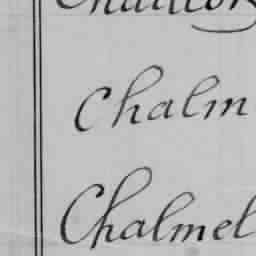 Chalm
Chalmel